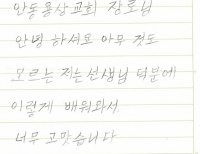 안동용상교회 장로님
안녕 하셔요 아무 것도
모르는 저는선생님 덕분에
이렇게 배워와서
너무 고맛습니다